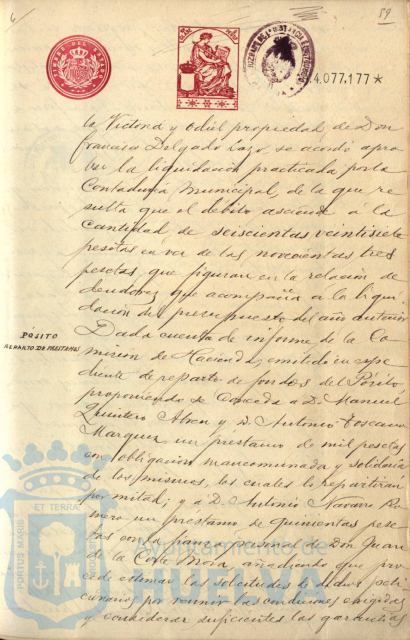 6
59
TIMBRE DEL ESTADO
4.077.177 *
la Victoria y Odiel propiedad de Don
Francisco Delgado Lazo, se acordó apro-
bar la liquidación practicada por la
Contaduría Municipal, de la que re
sulta que el débito asciende á la
cantidad de seiscientas veintisiete
pesetas en vez de las novecientas tres
pesetas que figuran en la relación de
deudores que acompaña á la liqui
dación del presupuesto del año anterior
PÓSITO
REPARTO DE PRESTAMOS
Dada cuenta de informe de la Co
misión de Hacienda, emitido en expe
diente de reparto de fondos del Pósito,
proponiendo se conceda á D. Manuel
Quintero Alven y D. Antonio Toscano
Marquez un préstamo de mil pesetas
con obligación mancomunada y solidaria
de los mismos, los cuales lo repartirán
por mitad; y á D. Antonio Navarro Ro
mero un préstamo de quinientas pese
tas con la fianza personal de Don Juan
de la Corte Mora, añadiendo que pro
cede estimar las solicitudes de dichos peti
cionarios por reunir las condiciones exigidas
y considerar suficientes las garantías
PORTUS MARIS ET TERRAE
Ayuntamiento de
HUELVA